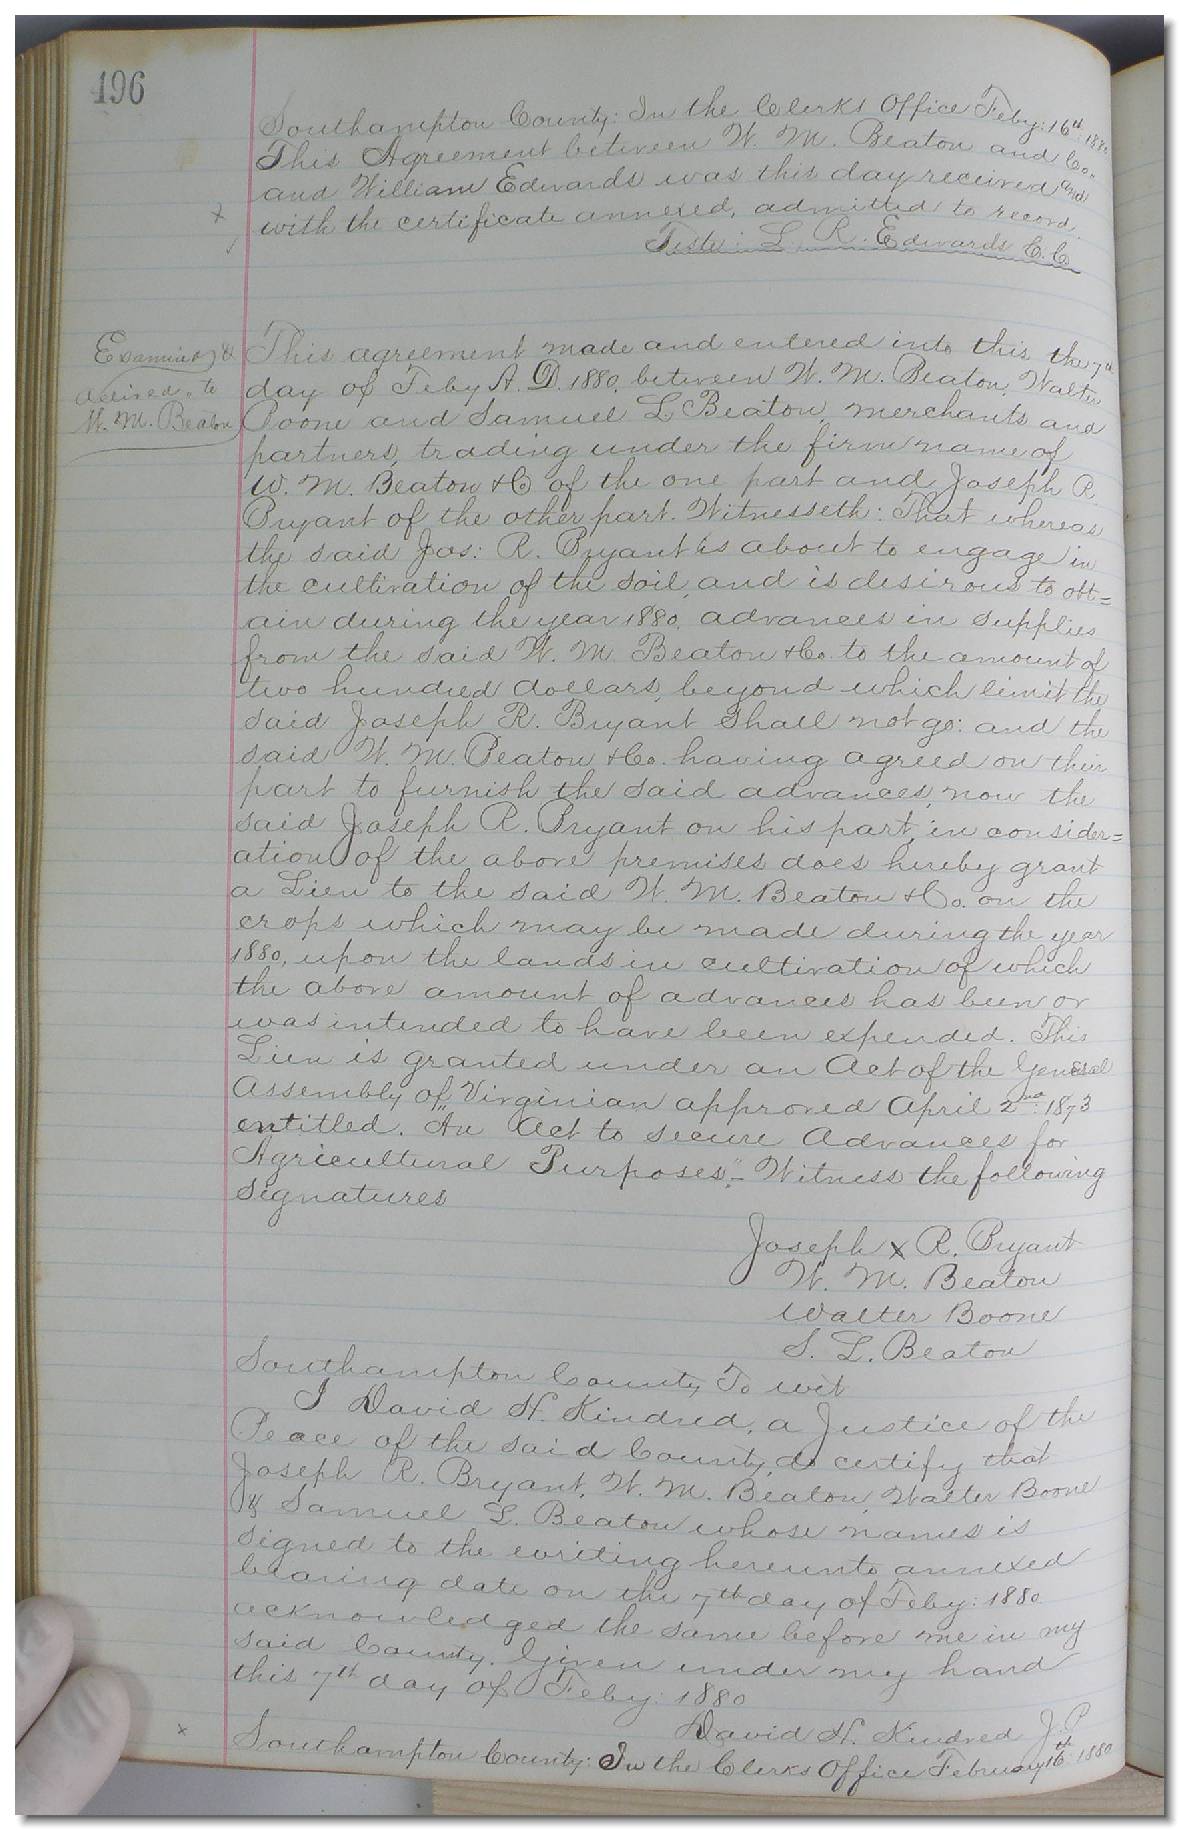 496
Southampton County: In the Clerks Office Feby: 16th 1880
This Agreement between W. M. Beaton and Co.,
and William Edwards was this day received and
with the certificate annexed, admitted to record.
Teste: L. R. Edwards C. C.
Examined &
delived. to
W. M. Beaton
This agreement made and entered into this the 7th
day of Feby A. D. 1880, between W. M. Beaton, Walter
Boone and Samuel L Beaton, merchants and
partners, trading under the firm name of
W. M. Beaton & C of the one part and Joseph R.
Bryant of the other part. Witnesseth: That whereas
the said Jos: R. Bryant is about to engage in
the cultivation of the soil, and is desirous to obt=
ain during the year 1880, advances in supplies
from the said W. M. Beaton & Co. to the amount of
two hundred dollars, beyond which limit the
said Joseph R. Bryant shall not go: and the
said W. M. Beaton & Co. having agreed on their
part to furnish the said advances, now the
said Joseph R. Bryant on his part, in consider=
ation of the above premises does hereby grant
a Lien to the said W. M. Beaton & Co. on the
crops which may be made during the year
1880, upon the lands in cultivation of which
the above amount of advances has been or
was intended to have been expended. This
Lien is granted under an Act of the General
Assembly of Virginian approved April 2nd 1873
entitled. "An Act to secure Advances for
Agricultural Purposes."- Witness the following
signatures
Joseph x R. Bryant
W. M. Beaton
Walter Boone
S. L. Beaton
Southampton County, To wit
I David H. Kindred, a Justice of the
Peace of the said County, do certify that
Joseph R. Bryant, W. M. Beaton, Walter Boone
& Samuel L. Beaton whose names is
signed to the writing hereunto annexed
bearing date on the 7th day of Feby: 1880
acknowledged the same before me in my
said County. Given under my hand
this 7th day of Feby: 1880
David H. Kindred J. P.
x Southampton County: In the Clerks Office February 16th 1880